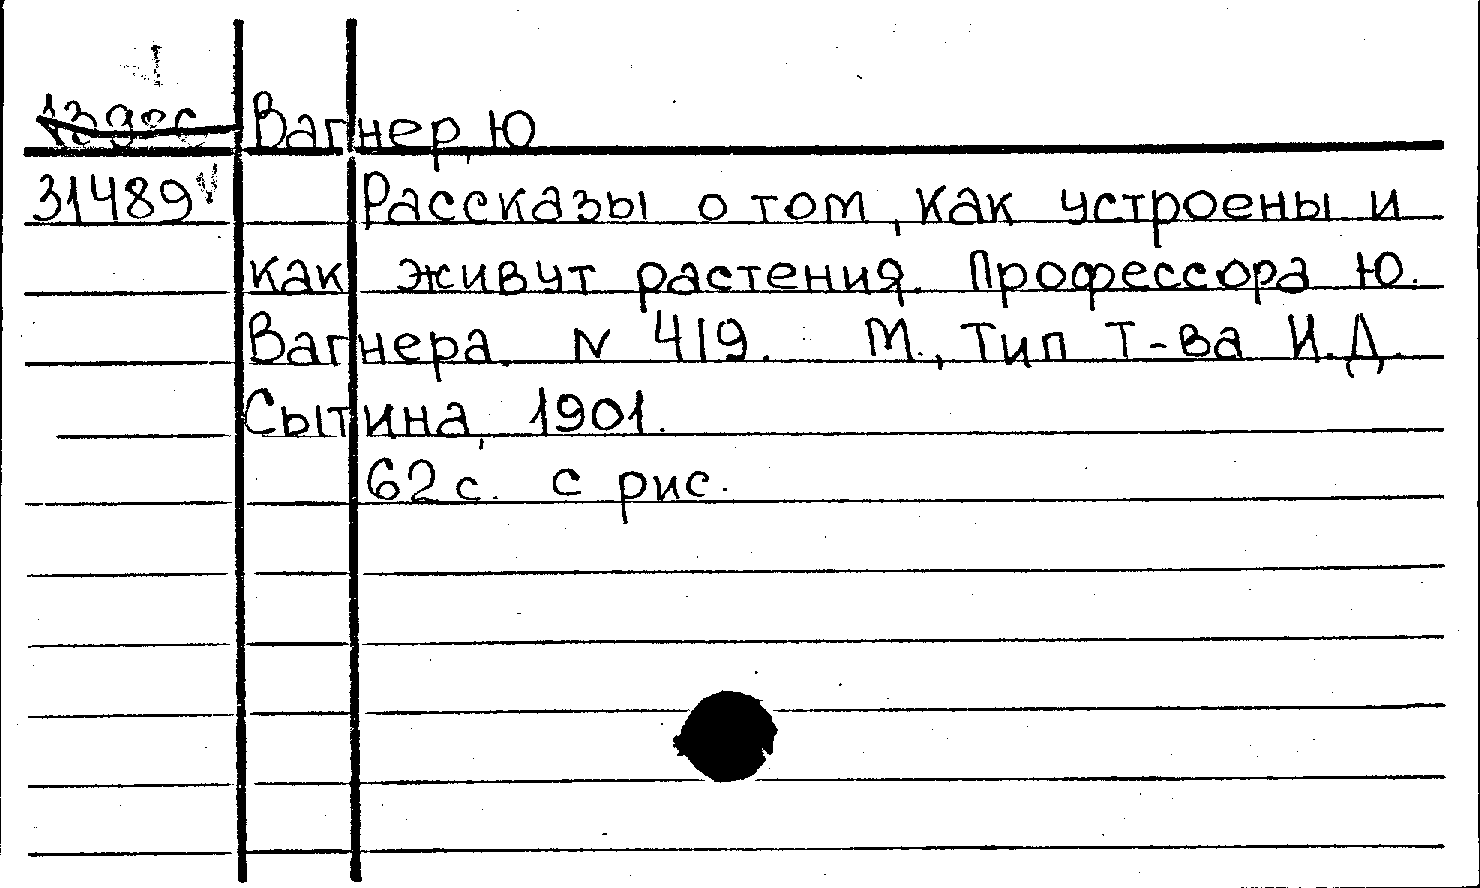 Вагнер, Ю
31489 Рассказы о том, как устроены и
как живут растения. Профессора Ю.
Вагнера. N 419. М., Тип Т-ва И.Д.
Сытина, 1901.
62 с. с рис.